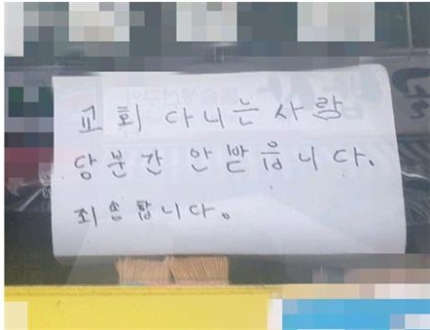 교회 다니는사람
당분간 안받읍니다.
죄송합니다.